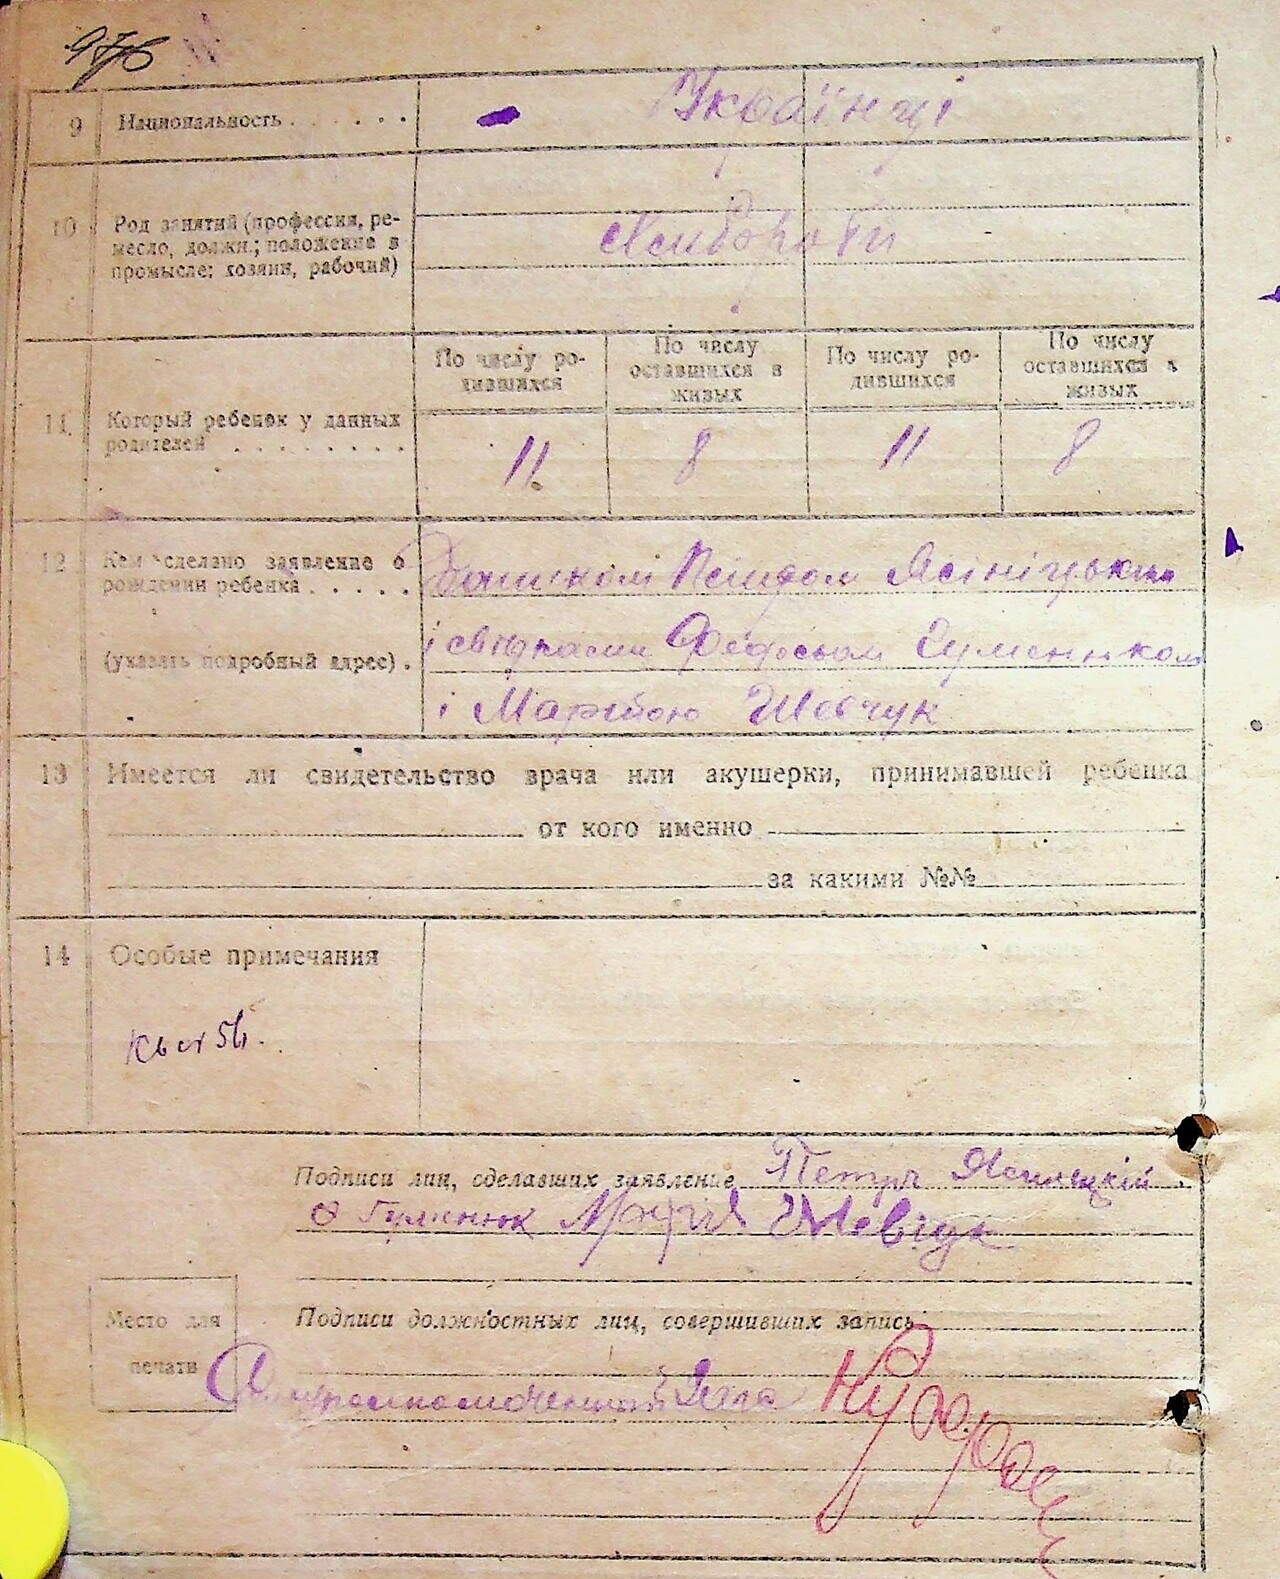 976
9 Национальность . . . . . . Українці
10 Род занятий (профессия, ре-
месло, должн.; положение в
промысле: хозяин, рабочий)
Хлибороби
По числу ро-
дившихся
По числу
оставшихся в
живых
По числу ро-
дившихся
По числу
оставшихся в
живых
11. Который ребенок у данных
родителей . . . . . . . .
11 8 11 8
12 Кем сделано заявление о
рождении ребенка . . . . .
(указать подробный адрес) .
Батьком Петром
і свідками Федосьом
і Марією Шевчук
13 Имеется ли свидетельство врача или акушерки, принимавшей ребенка
от кого именно
за какими №№
14 Особые примечания
Подписи лиц, сделавших заявление Петро
Марія Шевчук
Место для
печати
Подписи должностных лиц, совершивших запись